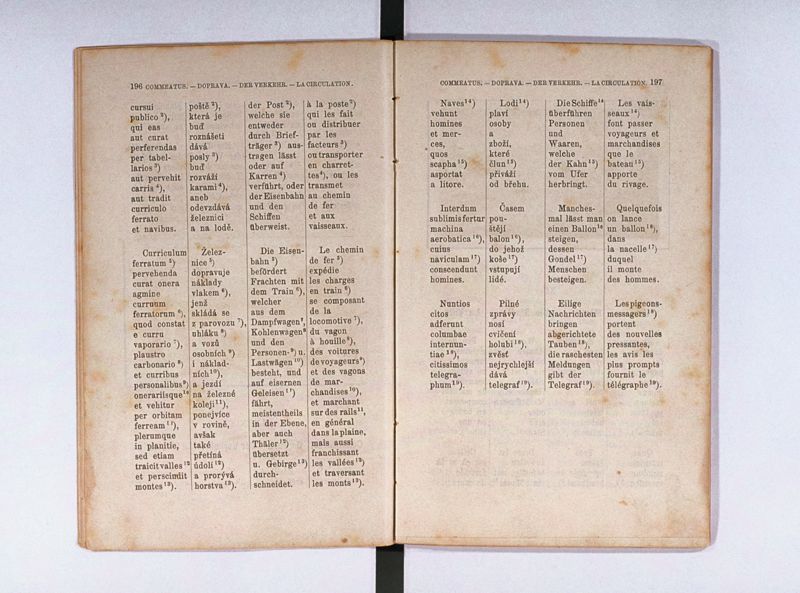 196 COMMEATUS. — DOPRAVA. — DER VERKEHR. — LA CIRCULATION.
cursui
publico ²),
qui eas
aut curat
perferendas
per tabel-
larios ³)
aut pervehit
carris ⁴),
aut tradit
curriculo
ferrato
et navibus.
poště ²),
která je
buď
roznášeti
dává
posly ³)
buď
rozváží
karami ⁴),
aneb
odevzdává
železnici
a na lodě.
der Post ²),
welche sie
entweder
durch Brief-
träger ³) aus-
tragen lässt
oder auf
Karren ⁴)
verführt, oder
der Eisenbahn
und den
Schiffen
überweist.
à la poste ²)
qui les fait
ou distribuer
par les
facteurs ³)
ou transporter
en charret-
tes ⁴), ou les
transmet
au chemin
de fer
et aux
vaisseaux.
Curriculum
ferratum ⁵)
pervehenda
curat onera
agmine
curruum
ferratorum ⁶),
quod constat
e curru
vaporario ⁷),
plaustro
carbonario ⁸)
et curribus
personalibus ⁹)
onerariisque ¹⁰
et vehitur
per orbitam
ferream ¹¹),
plerumque
in planitie,
sed etiam
traicit valles ¹²
et perscindit
montes ¹³).
Želez-
nice ⁵)
dopravuje
náklady
vlakem ⁶),
jenž
skládá se
z parovozu ⁷),
uhláku ⁸)
a vozů
osobních ⁹)
i náklad-
ních ¹⁰),
a jezdí
na železné
koleji ¹¹),
ponejvíce
v rovině,
avšak
také
přetíná
údolí ¹²)
a prorývá
horstva ¹³).
Die Eisen-
bahn ⁵)
befördert
Frachten mit
dem Train ⁶),
welcher
aus dem
Dampfwagen ⁷,
Kohlenwagen ⁸
und den
Personen- ⁹) u.
Lastwägen ¹⁰)
besteht, und
auf eisernen
Geleisen ¹¹)
fährt,
meistentheils
in der Ebene,
aber auch
Thäler ¹²)
übersetzt
u. Gebirge ¹³)
durch-
schneidet.
Le chemin
de fer ⁵)
expédie
les charges
en train ⁶)
se composant
de la
locomotive ⁷),
du vagon
à houille ⁸),
des voitures
de voyageurs ⁹)
et des vagons
de mar-
chandises ¹⁰),
et marchant
sur des rails ¹¹,
en général
dans la plaine,
mais aussi
franchissant
les vallées ¹²)
et traversant
les monts ¹³).
COMMEATUS. — DOPRAVA. — DER VERKEHR. — LA CIRCULATION. 197
Naves ¹⁴)
vehunt
homines
et mer-
ces,
quos
scapha ¹⁵)
asportat
a litore.
Lodi ¹⁴)
plaví
osoby
a
zboží,
které
člun ¹⁵)
přiváží
od břehu.
Die Schiffe ¹⁴
überführen
Personen
und
Waaren,
welche
der Kahn ¹⁵)
vom Ufer
herbringt.
Les vais-
seaux ¹⁴)
font passer
voyageurs et
marchandises
que le
bateau ¹⁵)
apporte
du rivage.
Interdum
sublimis fertur
machina
aerobatica ¹⁶),
cuius
naviculam ¹⁷)
conscendunt
homines.
Časem
pou-
štějí
balon ¹⁶),
do jehož
koše ¹⁷)
vstupují
lidé.
Manches-
mal lässt man
einen Ballon ¹⁶
steigen,
dessen
Gondel ¹⁷)
Menschen
besteigen.
Quelquefois
on lance
un ballon ¹⁶),
dans
la nacelle ¹⁷)
duquel
il monte
des hommes.
Nuntios
citos
adferunt
columbae
internun-
tiae ¹⁸),
citissimos
telegra-
phum ¹⁹).
Pilné
zprávy
nosí
cvičení
holubi ¹⁸),
zvěsť
nejrychlejší
dává
telegraf ¹⁹).
Eilige
Nachrichten
bringen
abgerichtete
Tauben ¹⁸),
die raschesten
Meldungen
gibt der
Telegraf ¹⁹).
Les pigeons-
messagers ¹⁸)
portent
des nouvelles
pressantes,
les avis les
plus prompts
fournit le
télégraphe ¹⁹).